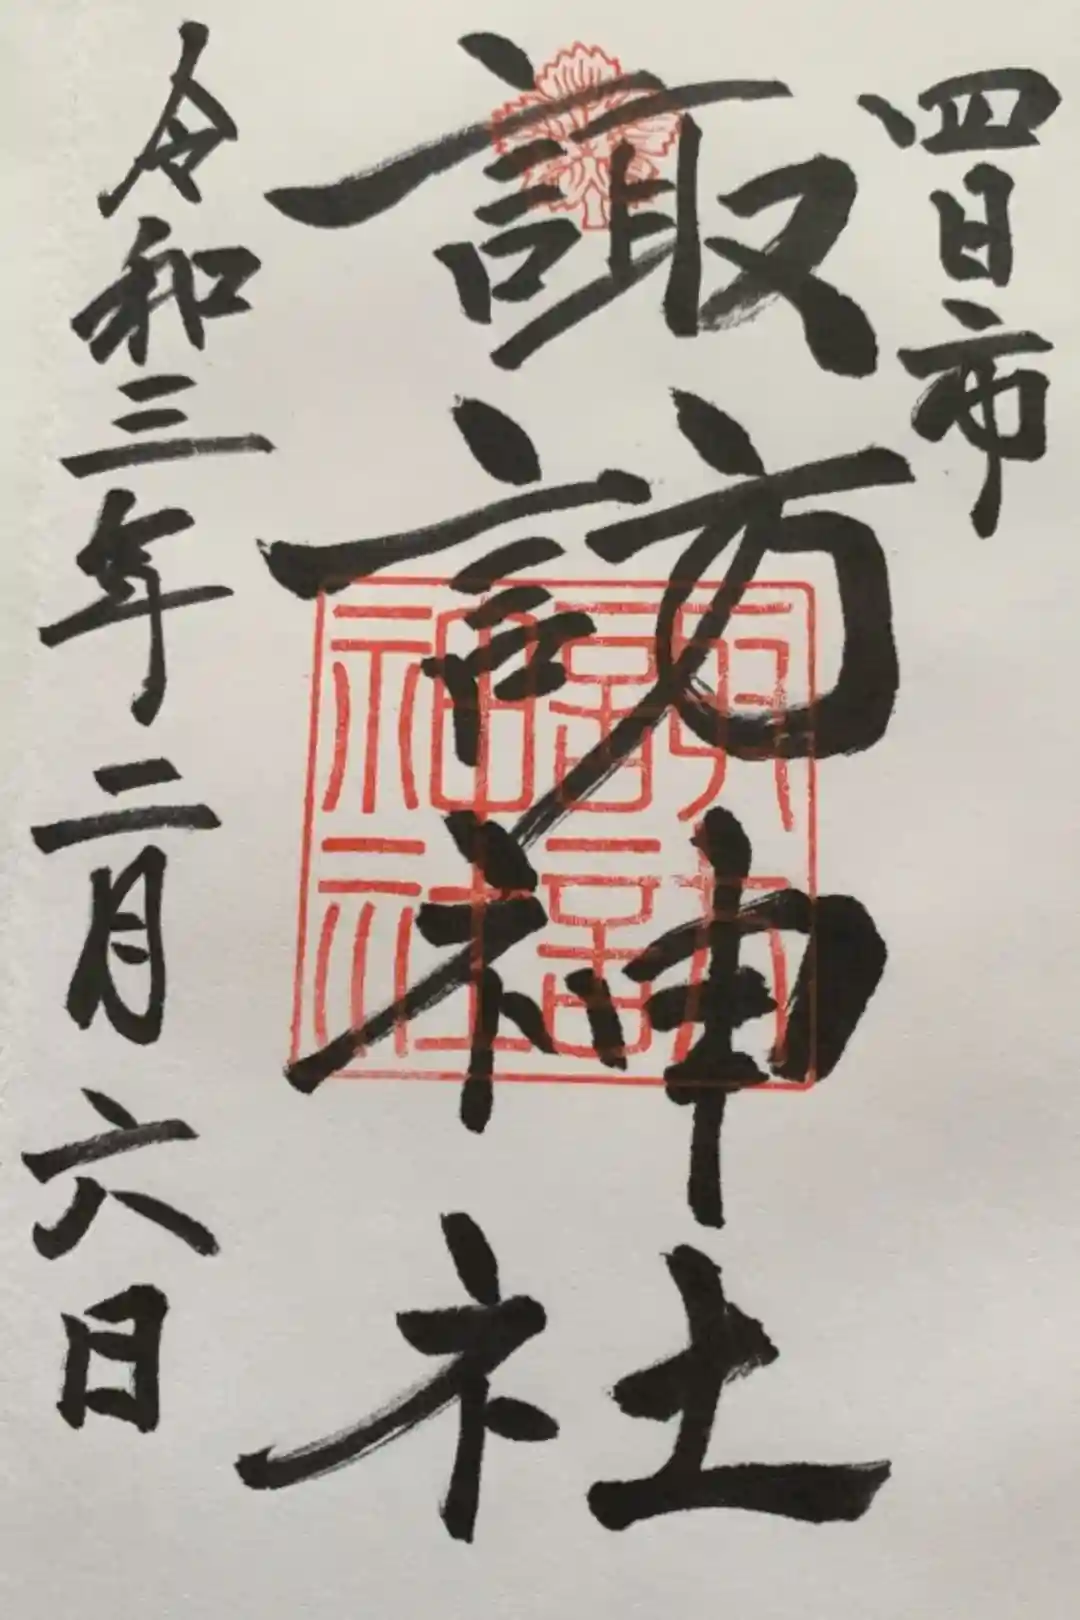 四日市
諏訪神社
諏訪神社
令和三年二月六日